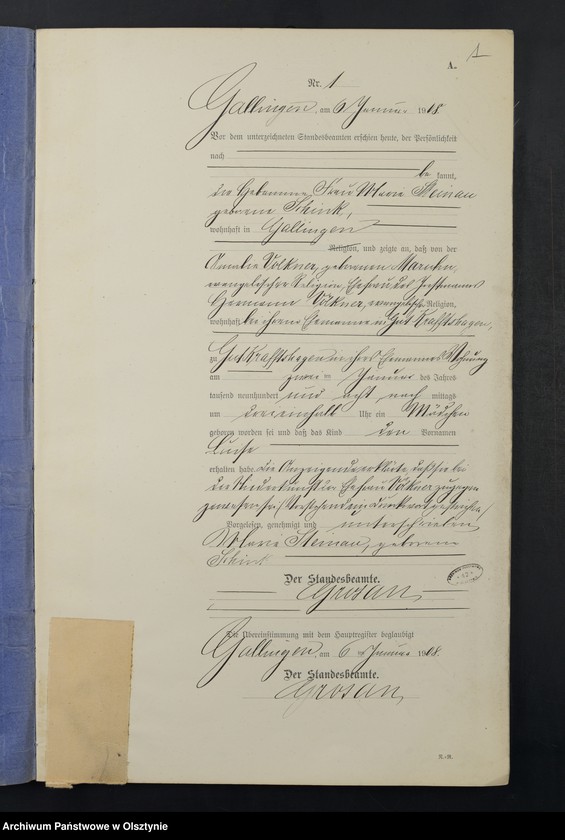 1
A.
Nr. 1
Gallingen, am 6 Januar 1908.
Vor dem unterzeichneten Standesbeamten erschien heute, der Persönlichkeit
nach
be kannt,
die Hebamme Frau Marie Steinau
geborene Schink,
wohnhaft in Gallingen
Religion, und zeigte an, daß von der
Amalie Volkner, geborenen
evangelischer Religion, Ehefrau des
Hermann Volkner, evangelischer Religion,
wohnhaft bei ihrem Ehemanne in Gut Krafftshagen,
zu Gut Krafftshagen in ihres Ehemannes Wohnung
am zwei ten Januar des Jahres
tausend neunhundert und acht nach mittags
um Uhr ein Mädchen
geboren worden sei und daß das Kind den Vornamen
Luise
erhalten habe. Die Anzeigende erklärte, daß sie bei
der Niederkunft der Ehefrau Volkner zugegen
gewesen sei. Vorstehend ein Druckwort gestrichen.
Vorgelesen, genehmigt und unterschrieben
Marie Steinau, geborene
Schink
Der Standesbeamte.
Grosan
Die Übereinstimmung mit dem Hauptregister beglaubigt
Gallingen, am 6 Januar 1908.
Der Standesbeamte.
Grosan
Archiwum Państwowe w Olsztynie